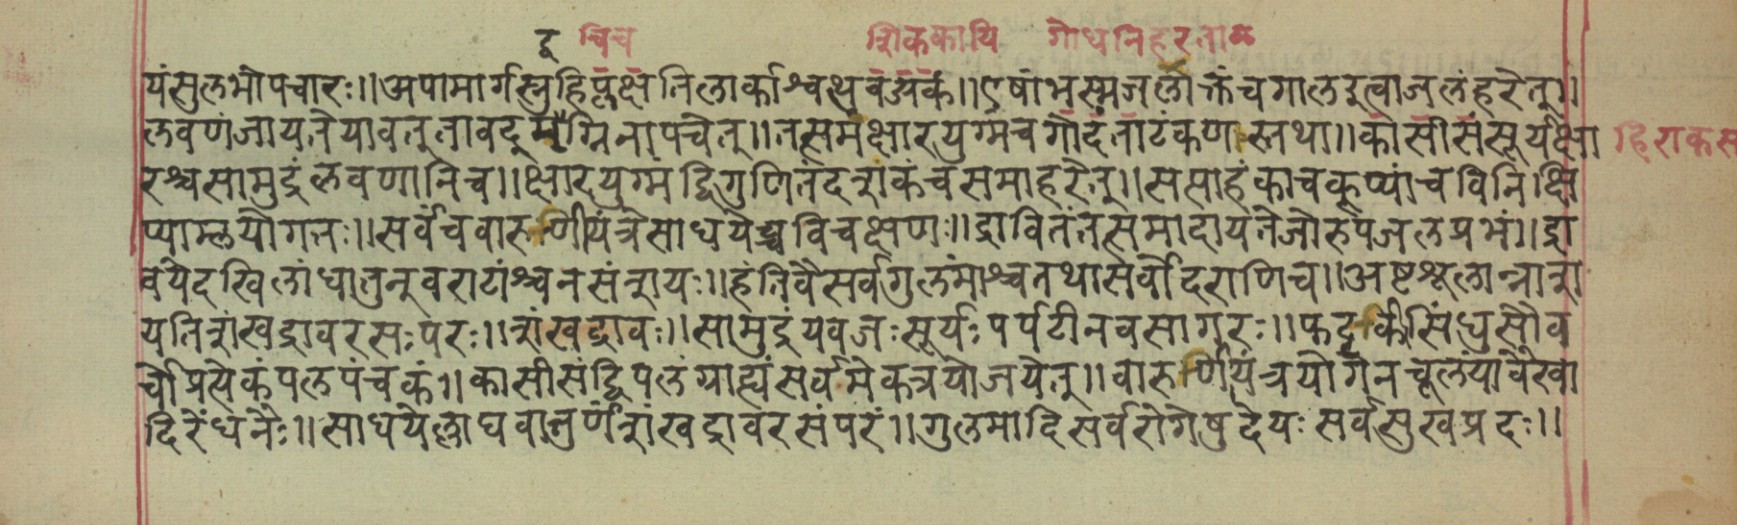 दु चिच शिककायि गोधनिहरताळ
यंसुलभोपचारः॥अपामार्गस्नुहिप्लक्षतिलार्काश्वत्थवज्रकं॥एषांभस्मजलोक्तंचगालइत्वाजलंहरेत्॥
लवणंजायतेयावत्तुतावदृमग्निनापचेत्॥तत्समंक्षारयुग्मंचगोदंताटंकणास्तथा॥कासीसंसूर्यक्षा हिराकस
रश्चसामुद्रंलवणानिच॥क्षारयुग्मंद्विगुणितंदत्राकंचसमाहरेत्॥ससाहंकाचकूप्यांचविनिक्षि
प्याम्लयोगतः॥सर्वंचवारुणीयंत्रेसाधयेच्चविचक्षणः॥द्रावितंतत्समादायतेजोरुपंजलप्रभं॥द्रा
वयेदखिलांधातुन्वराटांश्चनसंशयः॥हंतिवैसर्वगुलमांश्चतथासर्वोदराणिच॥अष्टशूलान्नाशा
यतिशंखद्रावरसःपरः॥शंखद्रावः॥सामुद्रंयवजःसूर्यःपर्पटीनवसागरः॥फटकीसिंधुसौव
र्चौप्रत्येकंपलपंचकं॥कासीसंद्विपलंग्राह्यंसर्वमेकत्रयोजयेत्॥वारुणियंत्रयोगेनचूलंयावेखा
दिरेंधनैः॥साधयेल्लाघवात्तुर्णंशंखद्रावरसंपरं॥गुलमादिसर्वरोगेषुदेयःसर्वसुखप्रदः॥